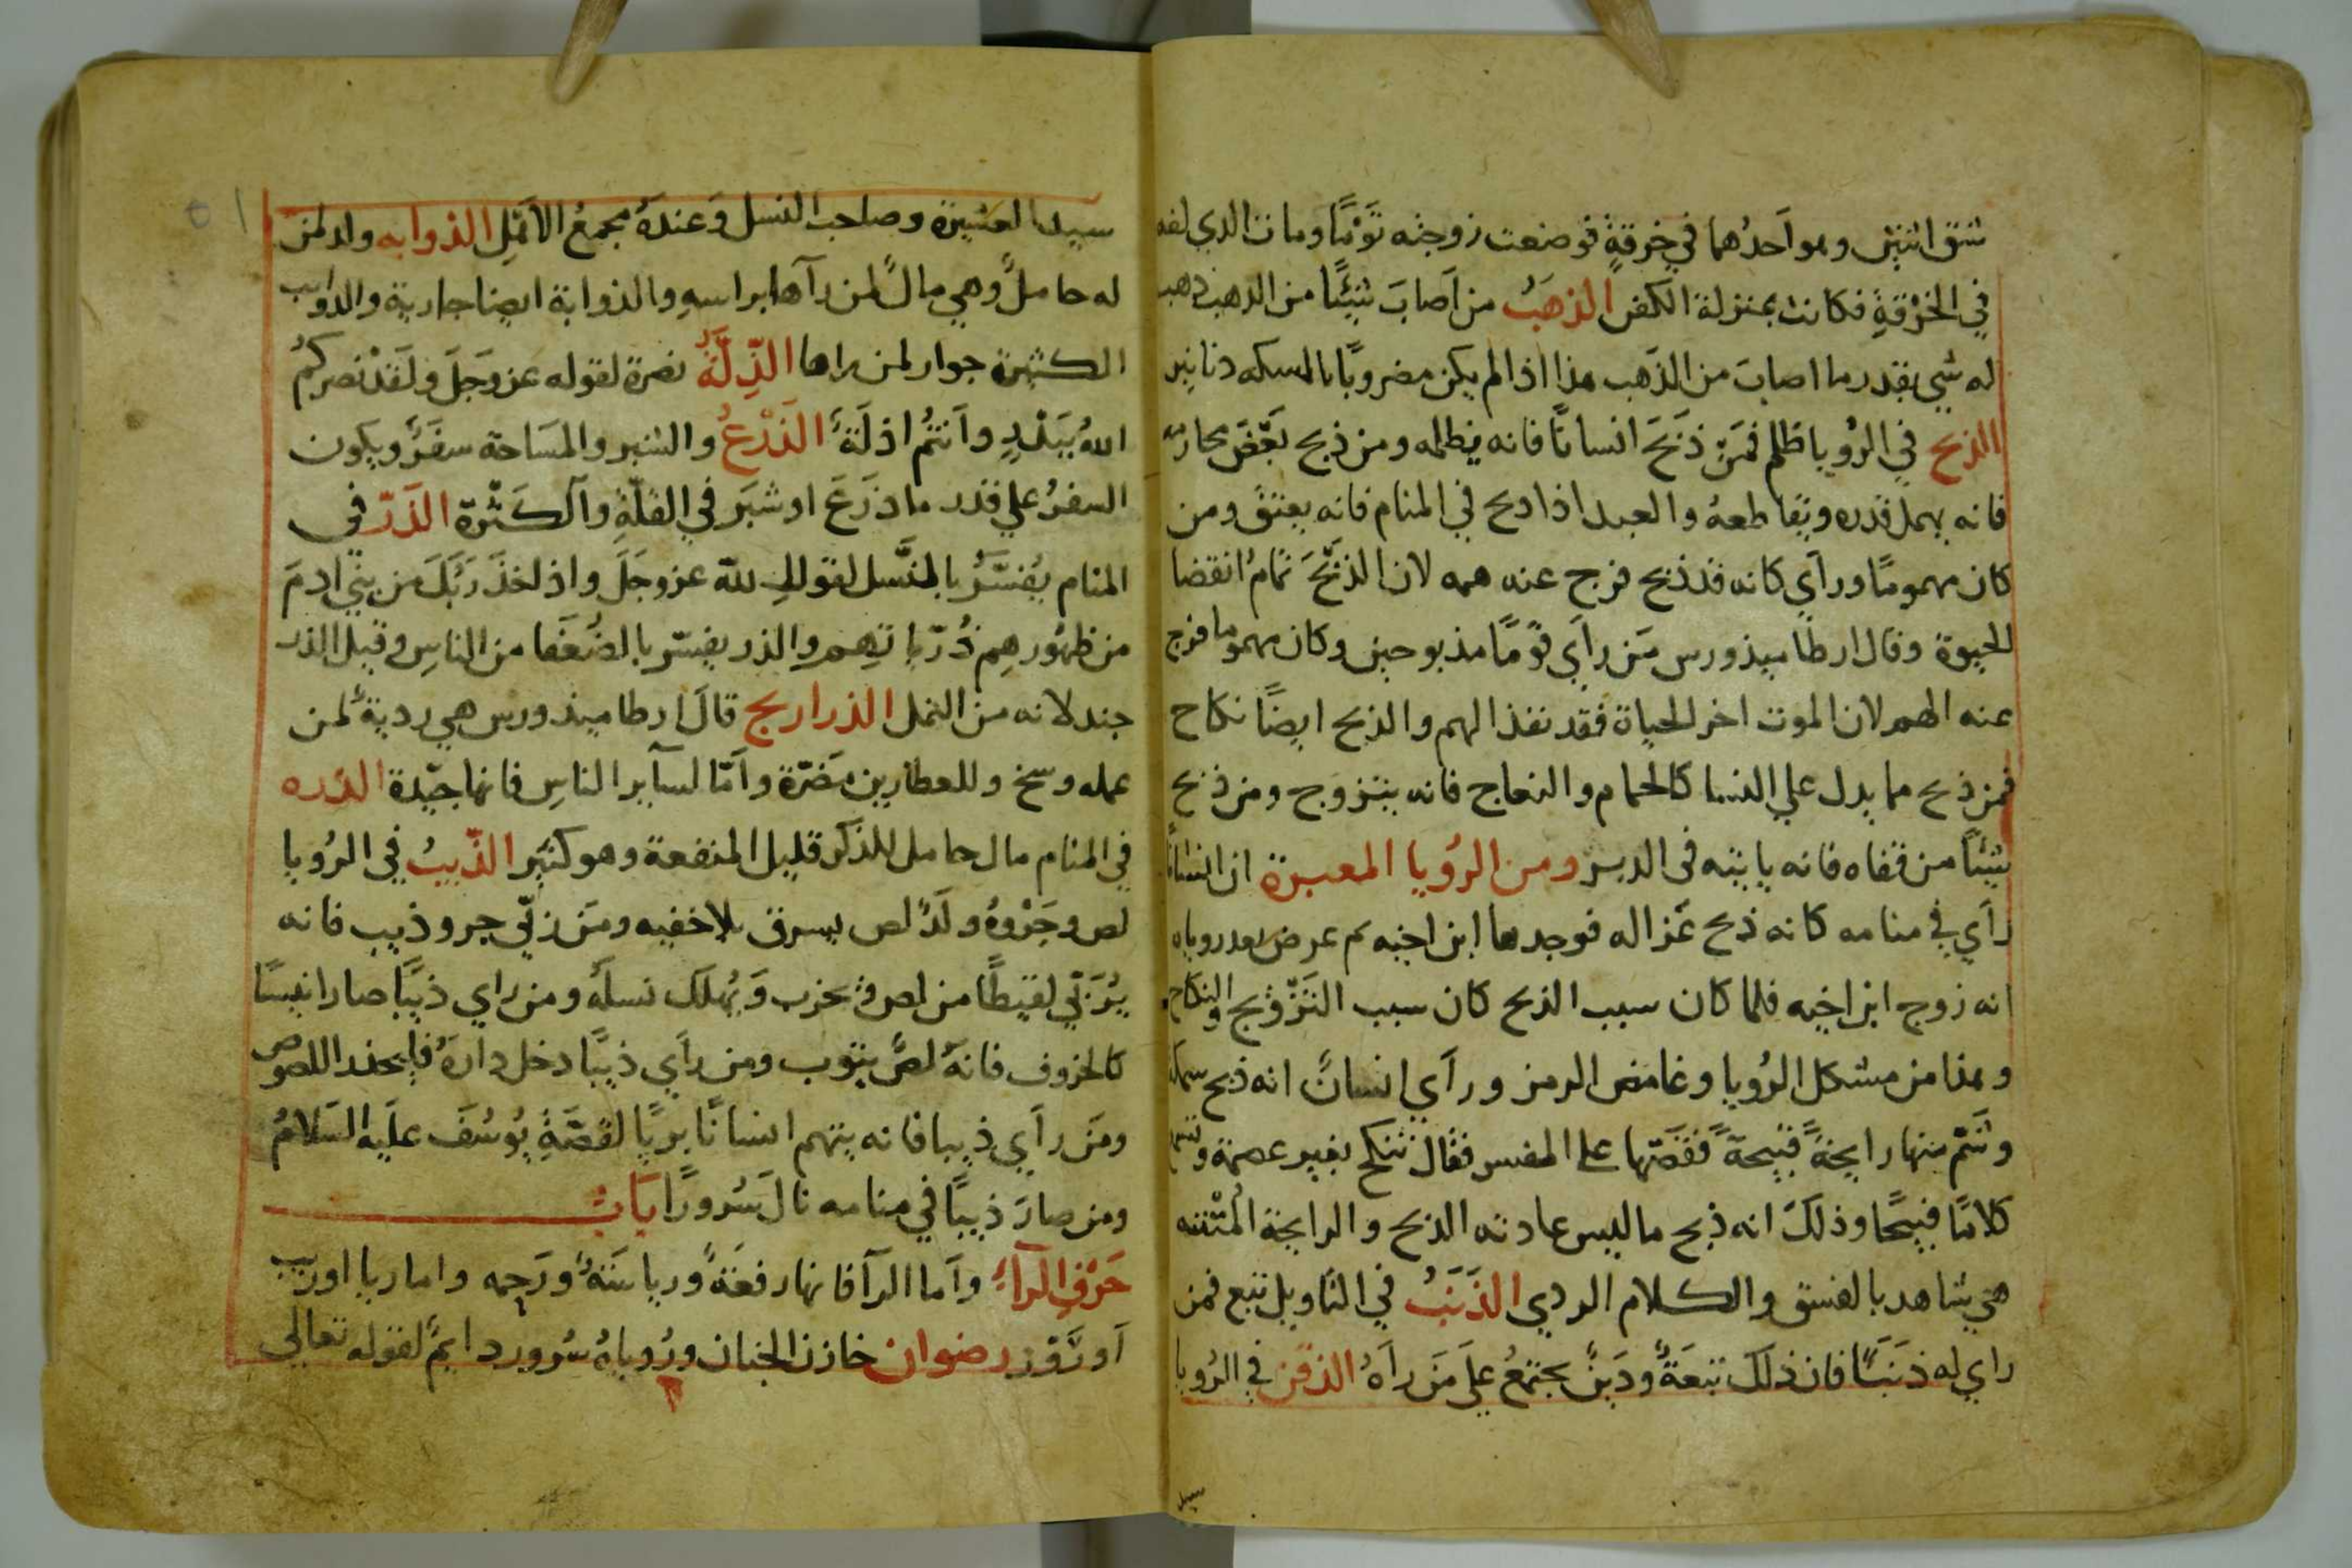 شق اثنين وهو احدُهما في خرقةٍ فوضعت زوجته تَوْمًا ومات الذي لفه
في الخِرْقةِ فكانت بمنزلة الكفن الذهَبُ من اَصابَ شيئًا من الذهب ذهب
له شي بقدر ما اصابَ من الذَهب هذا اذا لم يكن مضروبًا بالسكه دنانير
الذبح في الرُويا ظلم فمَنْ ذَبَحَ انسانًا فانه يظلمه ومن ذبح بَعْضَ محارمه
فانه يهمل قدره ويُقاطعهُ والعبد اذا ذبح في المنام فانه يعتقُ ومن
كان مهمومًا وراَي كانه قد ذبح فرج عنه همه لان الذَبْحَ تمامُ انقضا
الحيوة وقال ارطاميذورس مَن راَي قومًا مذبوحين وكان مهموما فرج
عنه الهم لان الموت اخر الحياة فقد نفذ الهم والذبح ايضًا نكاح
فمن ذبح مما يدل علي النسا كالحمام والنعاج فانه يتزوج ومن ذبح
شيئًا من قفاه فانه ياتيه في الدبر ومن الرُويا المعبرة ان انسانًا
راَي في منامه كانه ذبح غزاله فوجدها ابن اخيه ثم عرض بعد روياه
انه زوج ابن اخيه فلما كان سبب الذبح كان سبب التَزْوِيج والنكاح
وهذا من مشكل الرُويا وغامض الرمز وراَي انسانٌ انه ذبح سمكة
وشَمّ منها رايحَةً قبيحَةً فقصّها على المفسر فقال تنكح بغير عصمة وتسمع
كلامًا قبيحًا وذلكَ انه ذبح ما ليس عادته الذبح والرايحة المُنْتنه
هي شاهد بالفسق والكلام الردي الذَنَبُ في التاويل تبع فمن
راي له ذَنَبًا فان ذلكَ تبعَةٌ ودَينٌ يجتمعُ علَي مَن راَهُ الذقن في الرُويا
سيد
سيد العشيرة وصاحب النسل وَعندَهُ مجمعُ الاَمْلِ الذوابه ولد لمن
له حاملٌ وهي مالٌ لمن رآها براسهِ والذوابة ايضا جارية والدوايب
الكثيرة جوار لمن راها الذِّلّةُ نصرة لقوله عز وجَلَ ولَقَدْ نصركمُ
اللهُ ببَدْرٍ واَنتُم اذلَة الذَرْعُ والشبر والمسَاحة سفَرٌ ويكون
السفرُ علي قدر ما ذرَعَ او شبَرَ في القلّةِ والكَثْرَة الذَرّ في
المنام يُفسَّرُ بالنَّسل لقول الله عز وجَلَ واذ اخذَ رَبُّكَ من بنِي ادمَ
من ظهورهِم ذُرّياتهِم والذر يفسّر بالضُعَفا من الناسِ وقيل الذر
جند لانه من النمل الذراريح قالَ ارطاميذورس هي رديةٌ لمن
عمله وسخ وللعطارين مَضرّة واَمّا لسآير الناسِ فانها جيّدة الذره
في المنام مال حامل للذكر قليل المنفعة وهو كثير الذّيبُ في الرُويا
لص وجَرْوهُ ولَدُ لص يسرق بلا خفيه ومَن رَبّي جرو ذيب فانه
يُرَبّي لقيطًا من لص فيخرب وَيُهلَك نسلَهُ ومن راي ذيبًا صار انيسًا
كالخروف فانهُ لصٌ يتوب ومن راَي ذيبًا دخل دارهُ فليحذر اللصوص
ومَن راَي ذيبا فانه يتهم انسانًا بريًا لقصَّةِ يُوسُفَ علَيه السَلامُ
ومن صارَ ذيبًا في منامه نالَ سُرورًا بَابُ
حَرْفِ الرآءِ واَما الرآ فانها رفعَةٌ ورياسَةٌ ورَحمه واما ريا اوريب
اَو رَّوْر رضوان خازن الجنان ورُوياهُ سُرور دايمٌ لقوله تعالي